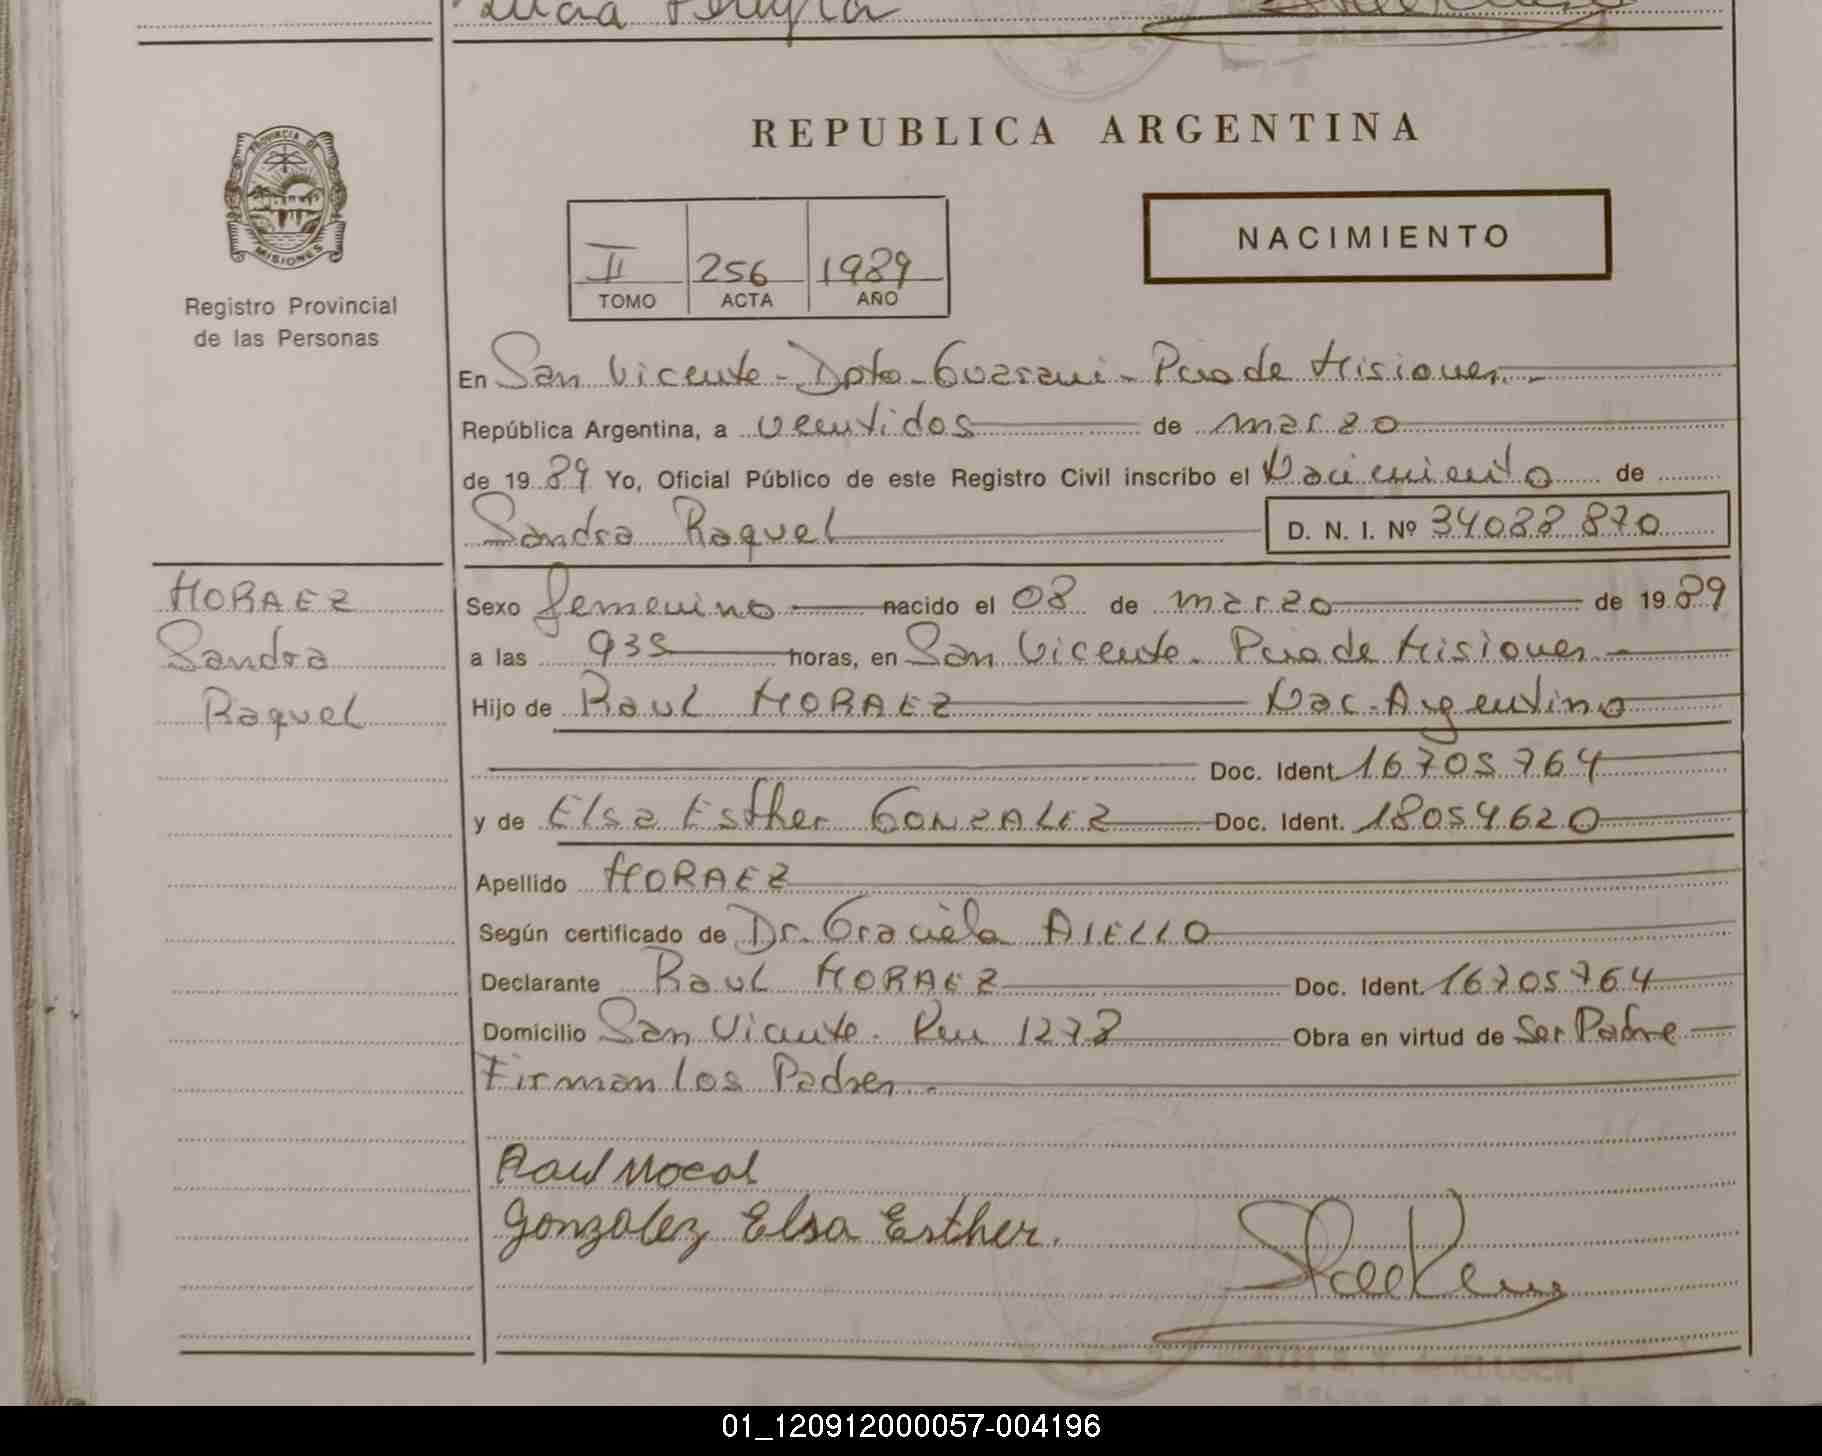 REPUBLICA ARGENTINA
PROVINCIA DE
MISIONES
Registro Provincial
de las Personas
II 256 1989
TOMO ACTA AÑO
NACIMIENTO
En San Vicente - Dpto - Guarani - Pcia de Misiones. -
República Argentina, a veintidos de marzo
de 1989 Yo, Oficial Público de este Registro Civil inscribo el Nacimiento de
Sandra Raquel D. N. I. Nº 34088870
MORAEZ
Sandra
Raquel
Sexo femenino nacido el 08 de marzo de 1989
a las 935 horas, en San Vicente. Pcia de Misiones -
Hijo de Raul MORAEZ Nac. Argentino
Doc. Ident. 16705764
y de Elsa Esther GONZALEZ Doc. Ident. 18054620
Apellido MORAEZ
Según certificado de Dr. Graciela AIELLO
Declarante Raul MORAEZ Doc. Ident. 16705764
Domicilio San Vicente. Km 1278 Obra en virtud de Ser Padre
Firman los Padres.
Raul
Gonzalez Elsa Esther.
01_120912000057-004196